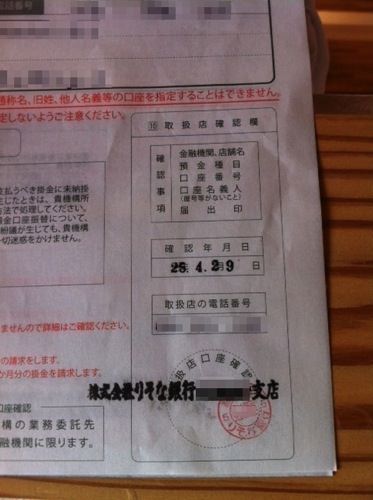 電話番号
通称名、旧姓、他人名義等の口座を指定することはできません。
定しないようご注意ください。
⑯ 取扱店確認欄
確認事項
金融機関、店舗名
預金種目
口座番号
口座名義人
(屋号等がないこと)
届出印
支払うべき掛金に未納掛
生じたときは、貴機構所
方法で処理してください。
預金口座振替について、
紛議が生じても、貴機構
一切迷惑をかけません。
確認年月日
25.4.29日
取扱店の電話番号
ませんので詳細はご確認ください。
の請求をします。
か月分の掛金を請求します。
取扱店口座確認
株式会社りそな銀行 支店
口座確認
構の業務委託先
融機関に限ります。